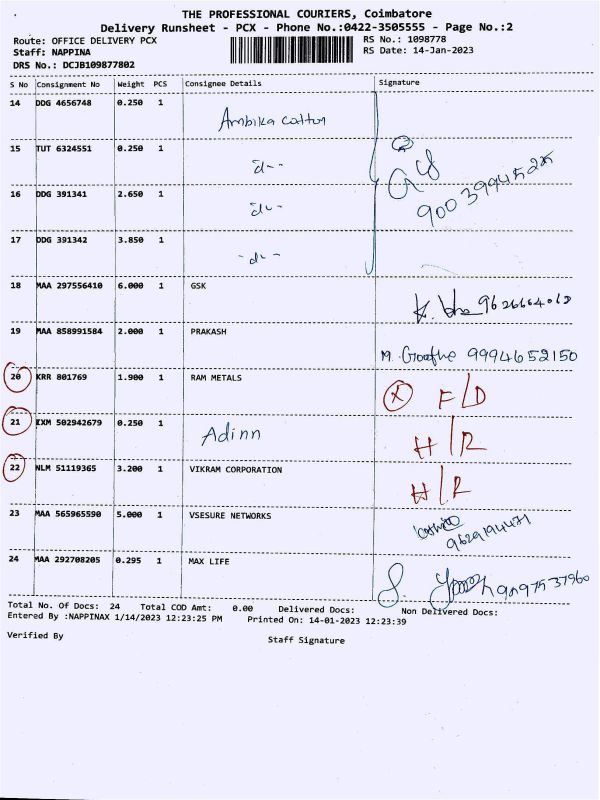 THE PROFESSIONAL COURIERS, Coimbatore
Delivery Runsheet - PCX - Phone No.:0422-3505555 - Page No.:2
Route: OFFICE DELIVERY PCX RS No.: 1098778
Staff: NAPPINA RS Date: 14-Jan-2023
DRS No.: DCJB109877802
S No Consignment No Weight PCS Consignee Details Signature
14 DDG 4656748 0.250 1 Ambika cotton
15 TUT 6324551 0.250 1 -do-
16 DDG 391341 2.650 1 -do-
9003994525
17 DDG 391342 3.850 1 -do-
18 MAA 297556410 6.000 1 GSK 9626664062
19 MAA 858991584 2.000 1 PRAKASH M. 9994652150
20 KRR 801769 1.900 1 RAM METALS X F/D
21 EXM 502942679 0.250 1 Adinn H/R
22 NLM 51119365 3.200 1 VIKRAM CORPORATION H/R
23 MAA 565965590 5.000 1 VSESURE NETWORKS 9629194471
24 MAA 292708205 0.295 1 MAX LIFE
Total No. Of Docs: 24 Total COD Amt: 0.00 Delivered Docs: Non Delivered Docs:
Entered By :NAPPINAX 1/14/2023 12:23:25 PM Printed On: 14-01-2023 12:23:39
Verified By Staff Signature